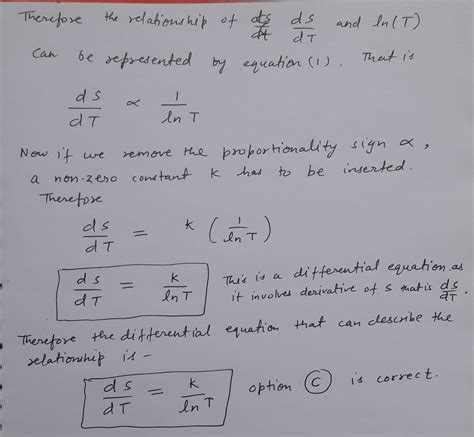 Therefore the relationship of ds/dt dS/dT and ln(T)
can be represented by equation (1). That is
dS/dT ∝ 1/ln T
Now if we remove the proportionality sign ∝,
a non-zero constant K has to be inserted.
Therefore
dS/dT = K (1/ln T)
dS/dT = K/ln T This is a differential equation as
it involves derivative of S that is dS/dT.
Therefore the differential equation that can describe the
relationship is -
dS/dT = K/ln T option (C) is correct.